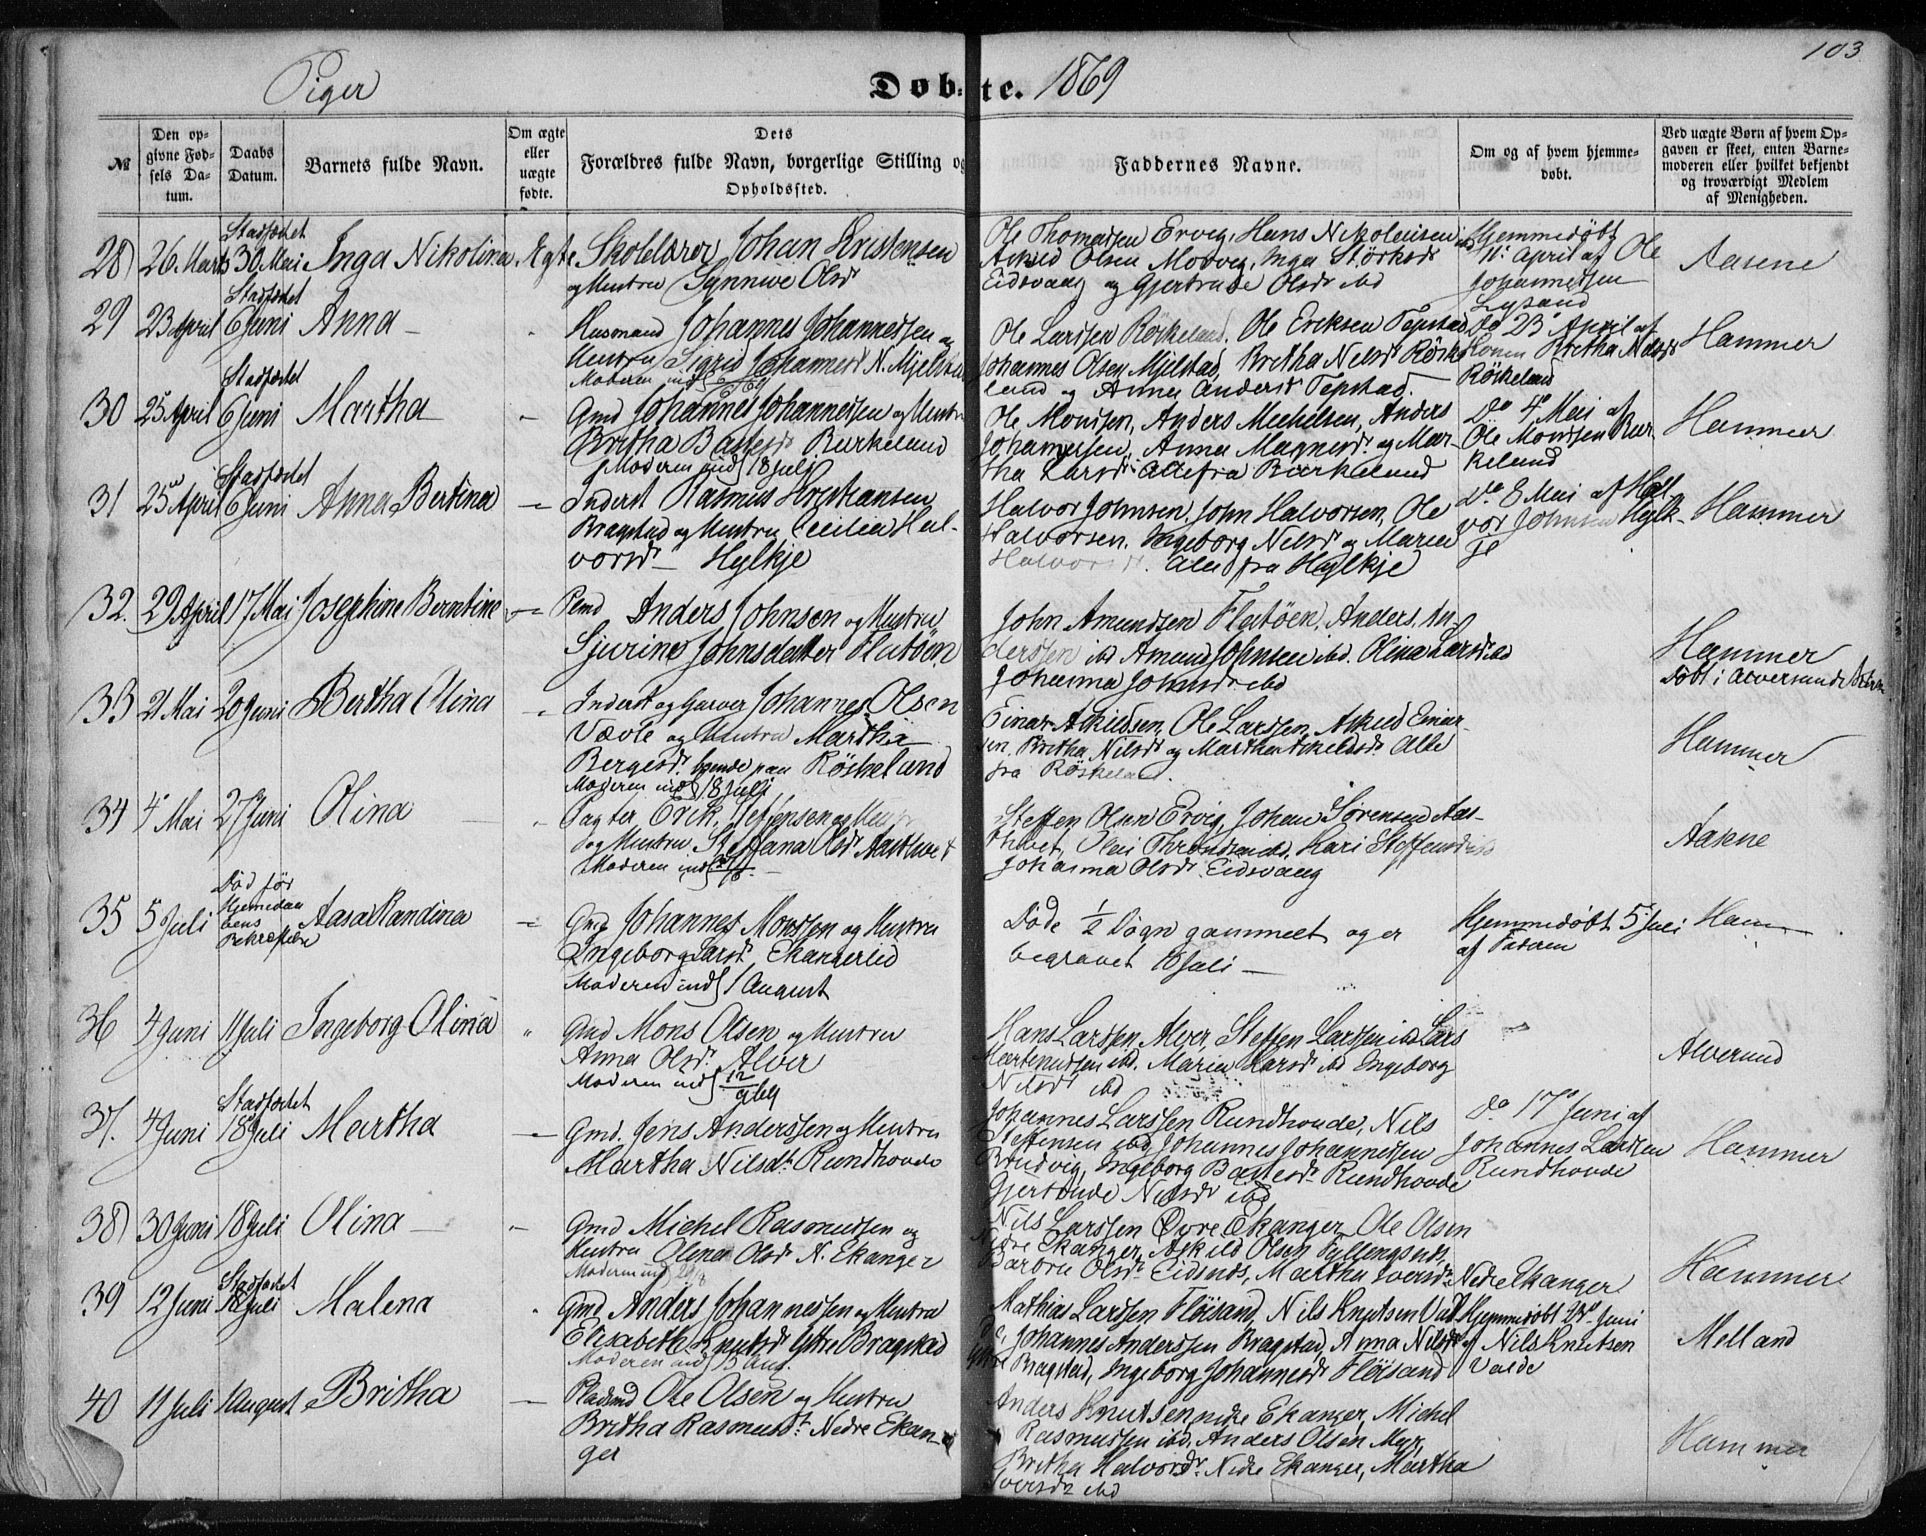 103
Piger
Døbte. 1869
№
Den opgivne Fødsels Datum.
Daabs Datum.
Barnets fulde Navn.
Om ægte eller uægte fødte.
Dets Forældres fulde Navn, borgerlige Stilling og Opholdssted.
Faddernes Navne.
Om og af hvem hjemmedøbt.
Ved uægte Børn af hvem Opgaven er skeet, enten Barnemoderen eller hvilket bekjendt og troværdigt Medlem af Menigheden.
28) 26. Marts Stadfæstet 30 Mai Inga Nikolina Ægte
Skolelærer Johan Kristensen
og Hustru Synnive Olsdr
Ole Thomassen Ervig, Hans Nikolaisen ibd
Askild Olsen Modvig, Inga Størksdr
Eidsvaag og Gjertrude Olsdr ibd
Hjemmedøbt
11. April af Ole
Johannessen
Lysand
Aasene
29 23 April Stadfæstet 6 Juni Anna -
Husmand Johannes Johannessen og
Hustru Sigrid Johannesdr N. Mjelstad
Moderen indl
Ole Larssen Röskeland, Ole Eriksen Tepstad
Johannes Olsen Mjelstad, Britha Nelsdr Röske
land og Anna Andersdr Tepstad.
Do 23 April af
Konen Britha Nelsdr
Röskeland
Hammer
30 25 April Stadfæstet 6 Juni Martha -
Gmd Johannes Johannessen og Hustru
Britha Bastesdr Burkeland
Moderen indl 18 juli
Ole Monssen, Anders Mechelsen, Anders
Johannessen, Anna Magnesdr og Mar
tha Larsdr Alle fra Burkeland
Do 4 Mai af
Ole Monssen Bur
keland
Hammer
31 25 April Stadfæstet 6 Juni Anna Bertina -
Inderst Rasmus Kristiansen
Bragstad og Hustru Cecilia Hal-
vorsdr - Hylkje
Halvor Johnsen, John Halvorsen, Ole
Halvorsen, Ingeborg Nilsdr og Maria
Halvorsdr. Alle fra Hylkje
Do 8 Mai af Hal
vor Johnsen Hylk-
je
Hammer
32. 29 April 17 Mai Josephine Berntine -
Pmd Anders Johnsen og Hustru
Sjurine Johnsdatter Flatöen
John Amundsen Flatöen, Anders An
derssen ibd Amund Johnsen ibd. Olina Larsdr ibd
Johanna Johnsdr ibd
Hammer
Döbt i Alversunds Kirke
33 21 Mai 20 Juni Bertha Olina -
Inderst og Garver Johannes Olsen
Vævle og Hustru Martha
Bergesdr. boende paa Röskeland
Moderen indl 18 juli
Einar Askildsen, Ole Larssen, Askild Einar
sen, Britha Nilsdr og Martha Askildsdr Alle
fra Röskeland
Hammer
34 4 Mai 27 Juni Olina -
Pagter Erik Steffensen og Hustru
og Hustru Steffana Olsdr Aasthvet
Moderen indl
Steffen Olsen Ervig, Johan Sörensen Aas-
thvet, Kari Steffensdr
Johanna Olsdr Eidsvaag
Aasene
35 5 Juli Död för Hjemedaabens Bekræftelse Aasa Randina -
Gmd Johannes Monssen og Hustru
Ingeborg Larsdr Ekangerlid
Moderen indl 1 August
Döde ½ Dögn gammelt og er
begravet Juli -
Hjemmedöbt 5 Juli
af Faderen
Ham
36 4 Juni 11 Juli Ingeborg Olina "
Gmd Mons Olsen og Hustru
Anna Olsdr Alver
Moderen indl 12
Hans Larssen Alver, Steffen Larssen ibd Lars
Martenussen ibd. Maria Larsdr ibd Ingeborg
Nilsdr ibd
Alversund
37. 4 Juni Stadfæstet 18 Juli Martha -
Gmd. Jens Anderssen og Hustru
Martha Nilsdr. Rundhovde
Johannes Larssen Rundhovde, Nils
Steffensen ibd, Johannes Johannessen
Brudvig, Ingeborg Bastesdr. Rundhovde
Gjertrude Nelsdr ibd
Do 17 Juni af
Johannes Larssen
Rundhovde
Hammer
38) 30 Juni 18 Juli Olina - -
Gmd Michel Rasmussen og
Hustru Olina Olsdr N. Ekanger
Moderen indl 29/8
Nils Larssen Övre Ekanger, Ole Olsen
Nedre Ekanger, Askild Olsen Fyllingsnes,
Barbra Olsdr Eidsnes, Martha Iversdr Nedre Ekanger
Hammer
39 12 Juni Stadfæstet 18 Juli Malena
Gmd Anders Johannessen og Hustru
Elisabeth Knutsdr Ytre Bragstad
Moderen indl 15 Aug.
Mathias Larssen Flöisand, Nils Knutsen Val
de, Johannes Anderssen Bragstad, Anna Nilsdr
Ytre Bragstad, Ingeborg Johannesdr Flöisand
Hjemmedöbt 27 Juni
af Nils Knutsen
Valde
Melland
40 11 Juli 1 August Britha -
Pladsmd Ole Olsen og Hustru
Britha Rasmusdr Nedre Ekan-
ger
Anders Knutsen nedre Ekanger, Michel
Rasmussen ibd, Anders Olsen Myr,
Britha Halvorsdr. Nedre Ekanger, Martha
Iversdr ibd
Hammer